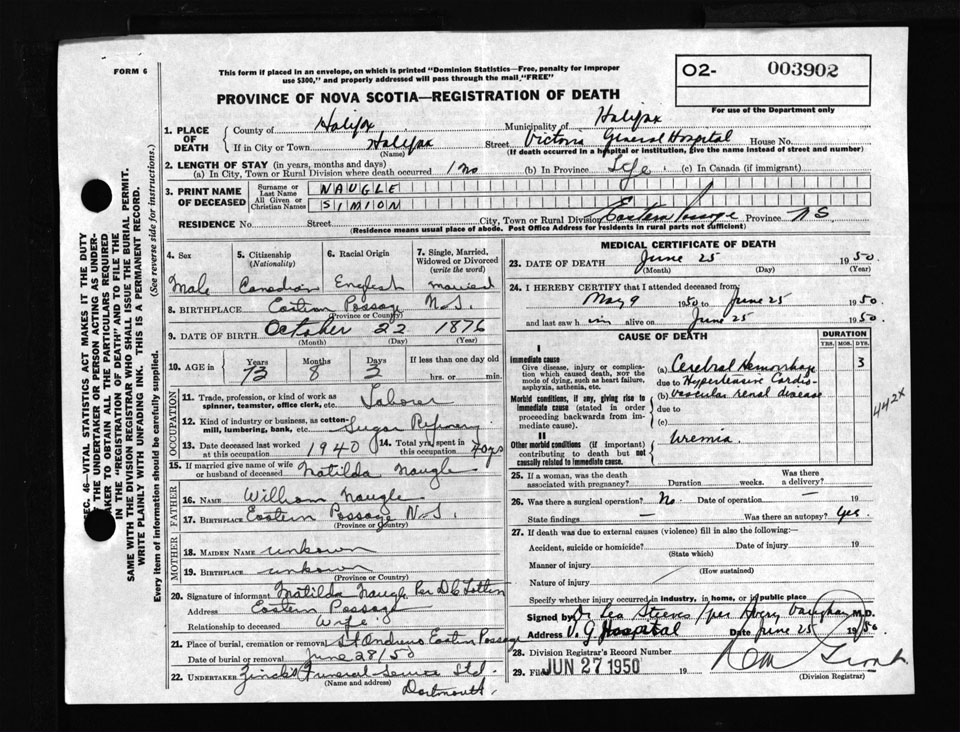 FORM 6
This form if placed in an envelope, on which is printed "Dominion Statistics—Free, penalty for improper
use $300," and properly addressed will pass through the mail "FREE"
O2- 003902
For use of the Department only
PROVINCE OF NOVA SCOTIA—REGISTRATION OF DEATH
1. PLACE OF DEATH
County of Halifax Municipality of Halifax
If in City or Town Halifax Street Victoria General Hospital House No.
(Name) (If death occurred in a hospital or institution, give the name instead of street and number)
2. LENGTH OF STAY (in years, months and days)
(a) In City, Town or Rural Division where death occurred 1 mo (b) In Province Life (c) In Canada (if immigrant)
3. PRINT NAME OF DECEASED
Surname or Last Name NAUGLE
All Given or Christian Names SIMION
RESIDENCE No. Street City, Town or Rural Division Eastern Passage Province N S
(Residence means usual place of abode. Post Office Address for residents in rural parts not sufficient)
4. Sex 5. Citizenship (Nationality) 6. Racial Origin 7. Single, Married, Widowed or Divorced (write the word)
Male Canadian English married
8. BIRTHPLACE Eastern Passage N.S.
(Province or Country)
9. DATE OF BIRTH October 22 1876
(Month) (Day) (Year)
10. AGE in Years Months Days If less than one day old
73 8 3 hrs. or min.
OCCUPATION
11. Trade, profession, or kind of work as spinner, teamster, office clerk, etc. Laborer
12. Kind of industry or business, as cotton-mill, lumbering, bank, etc. Sugar Refinery
13. Date deceased last worked at this occupation 1940 14. Total yrs. spent in this occupation 40 yrs
15. If married give name of wife or husband of deceased Matilda Naugle
FATHER
16. NAME William Naugle
17. BIRTHPLACE Eastern Passage N.S.
(Province or Country)
MOTHER
18. MAIDEN NAME unkown
19. BIRTHPLACE unkown
(Province or Country)
20. Signature of informant Matilda Naugle Per
Address Eastern Passage
Relationship to deceased Wife
21. Place of burial, cremation or removal St Andrews Eastern Passage
Date of burial or removal June 28/50
22. UNDERTAKER Zinck's Funeral Service Ltd.
(Name and address) Dartmouth.
MEDICAL CERTIFICATE OF DEATH
23. DATE OF DEATH June 25 1950.
(Month) (Day) (Year)
24. I HEREBY CERTIFY that I attended deceased from:
May 9 1950 to June 25 1950.
and last saw him alive on June 25 1950.
CAUSE OF DEATH DURATION
YRS. MOS. DYS.
I
Immediate cause
Give disease, injury or complication which caused death, NOT the mode of dying, such as heart failure, asphyxia, asthenia, etc.
(a) Cerebral Hemorrhage 3
due to Hypertensive Cardio-
Morbid conditions, if any, giving rise to immediate cause (stated in order proceeding backwards from immediate cause).
(b) vascular renal disease
due to
(c)
442X
II
Other morbid conditions (if important) contributing to death but not causally related to immediate cause.
Uremia.
25. If a woman, was the death associated with pregnancy? Duration weeks. Was there a delivery?
26. Was there a surgical operation? No. Date of operation — 19
State findings — Was there an autopsy? yes.
27. If death was due to external causes (violence) fill in also the following:
Accident, suicide or homicide? Date of injury 19
(State which)
Manner of injury
(How sustained)
Nature of injury
Specify whether injury occurred in industry, in home, or in public place
Signed by Dr. Leo Steeves / per Vaughan M.D.
Address V. G Hospital Date June 25 1950
28. Division Registrar's Record Number
29. Filed JUN 27 1950 19
(Division Registrar)
SEC. 46—VITAL STATISTICS ACT MAKES IT THE DUTY
OF THE UNDERTAKER OR PERSON ACTING AS UNDER-
TAKER TO OBTAIN ALL THE PARTICULARS REQUIRED
IN THE "REGISTRATION OF DEATH" AND TO FILE THE
SAME WITH THE DIVISION REGISTRAR WHO SHALL ISSUE THE BURIAL PERMIT.
WRITE PLAINLY WITH UNFADING INK. THIS IS A PERMANENT RECORD.
Every item of information should be carefully supplied. (See reverse side for instructions.)